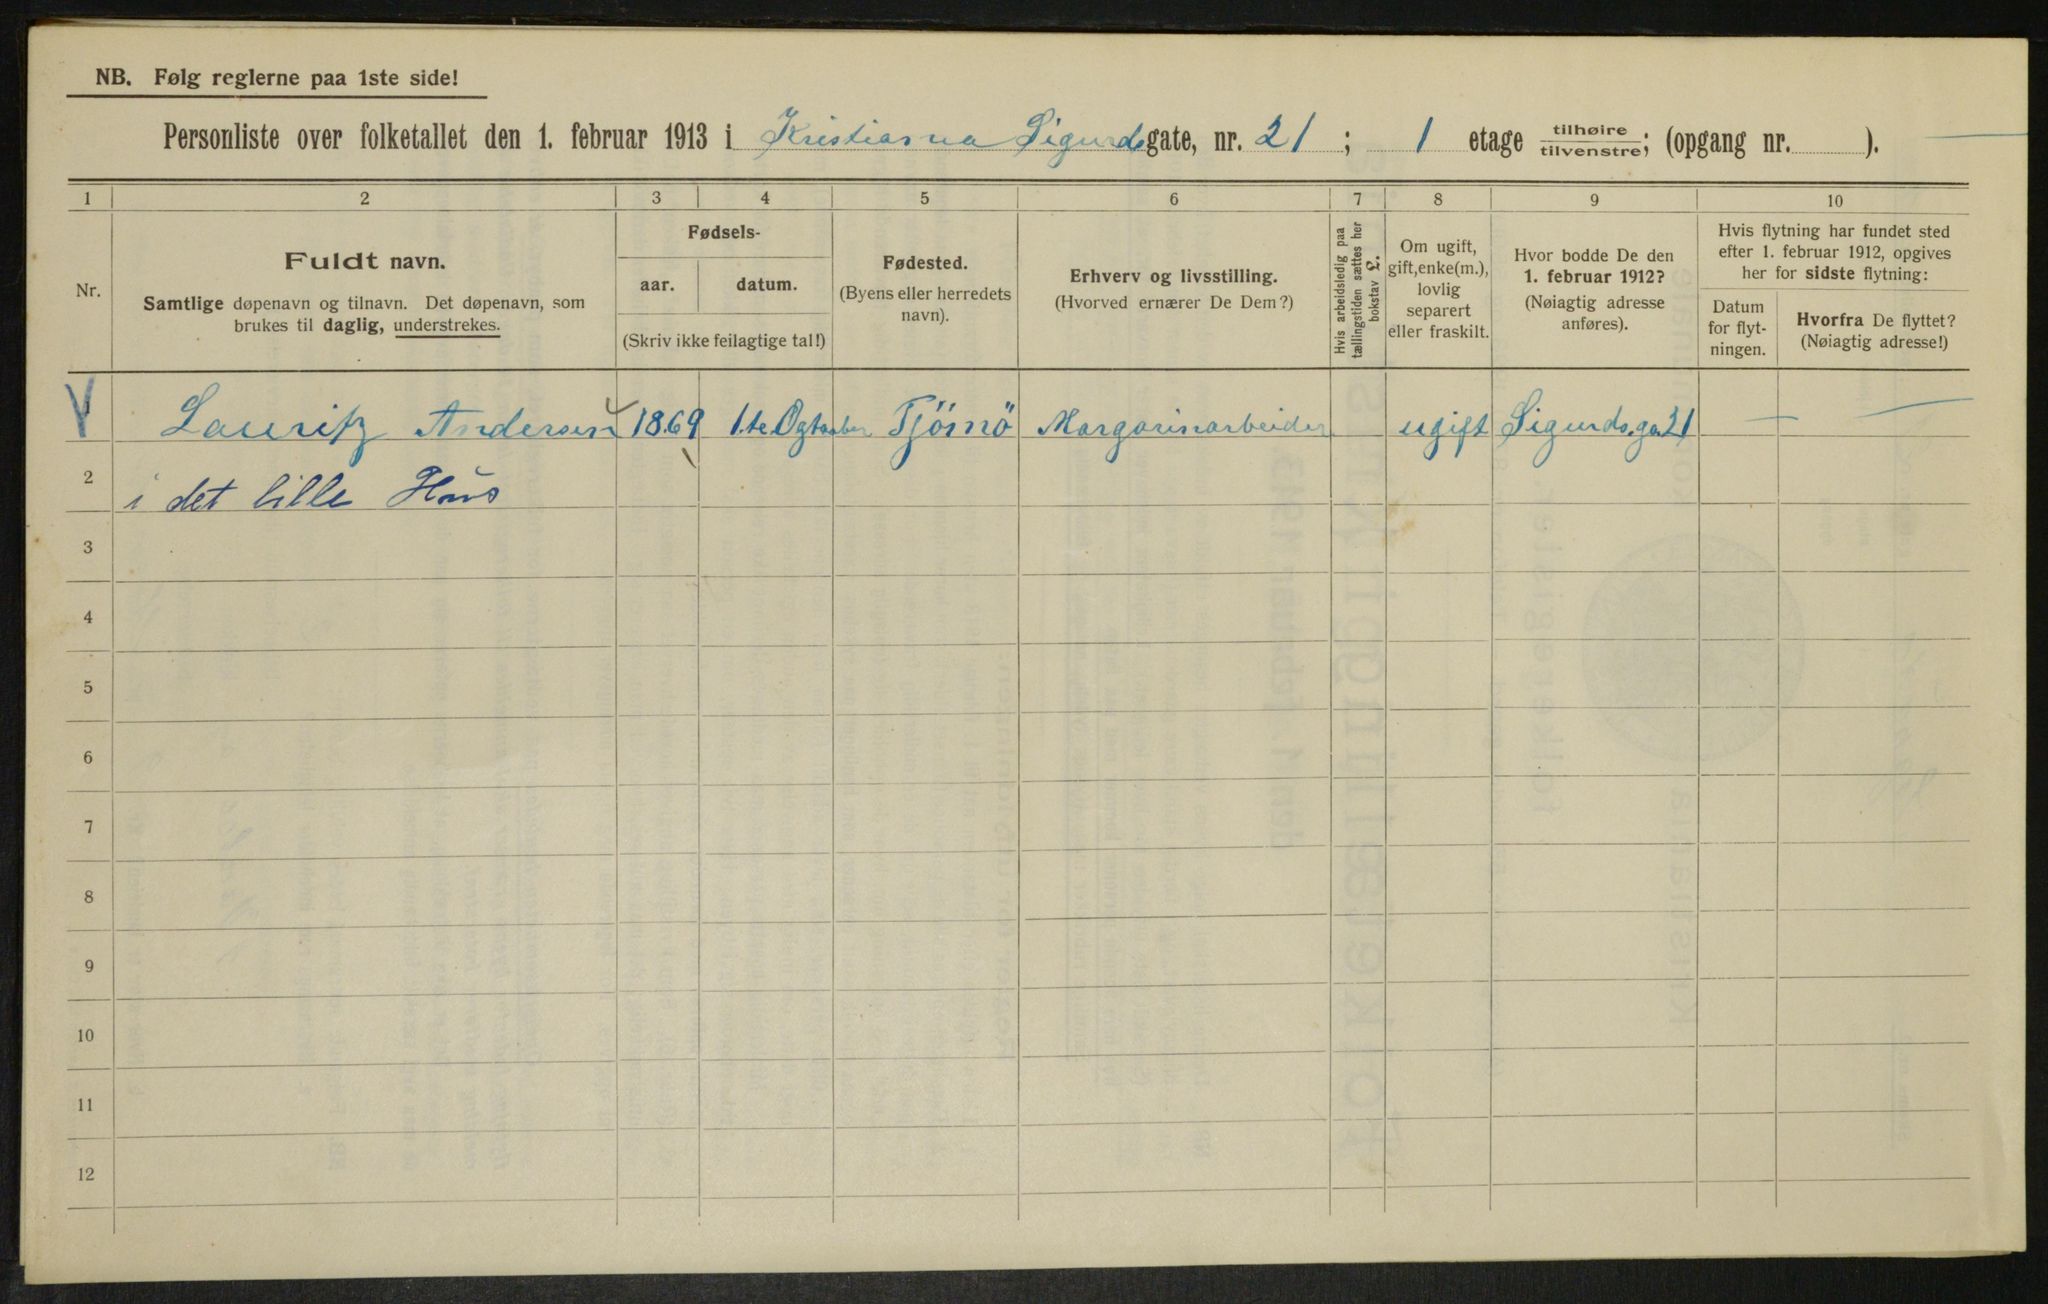 NB. Følg reglerne paa 1ste side!
Personliste over folketallet den 1. februar 1913 i Kristiasna Sigurdsgate, nr. 21; 1 etage tilhøire/tilvenstre; (opgang nr. ).
1 2 3 4 5 6 7 8 9 10
Nr.
Fuldt navn.
Samtlige døpenavn og tilnavn. Det døpenavn, som
brukes til daglig, understrekes.
Fødsels-
aar. datum.
(Skriv ikke feilagtige tal!)
Fødested.
(Byens eller herredets
navn).
Erhverv og livsstilling.
(Hvorved ernærer De Dem?)
Hvis arbeidsledig paa
tællingstiden sættes her
bokstav L.
Om ugift,
gift, enke(m.),
lovlig
separert
eller fraskilt.
Hvor bodde De den
1. februar 1912?
(Nøiagtig adresse
anføres).
Hvis flytning har fundet sted
efter 1. februar 1912, opgives
her for sidste flytning:
Datum
for flyt-
ningen.
Hvorfra De flyttet?
(Nøiagtig adresse!)
1 Lauritz Andersen 1869 1.te Ogtober Tjömö Margarinarbeider ugift Sigurds.ga 21 — —
2 i det lille Hus
3
4
5
6
7
8
9
10
11
12